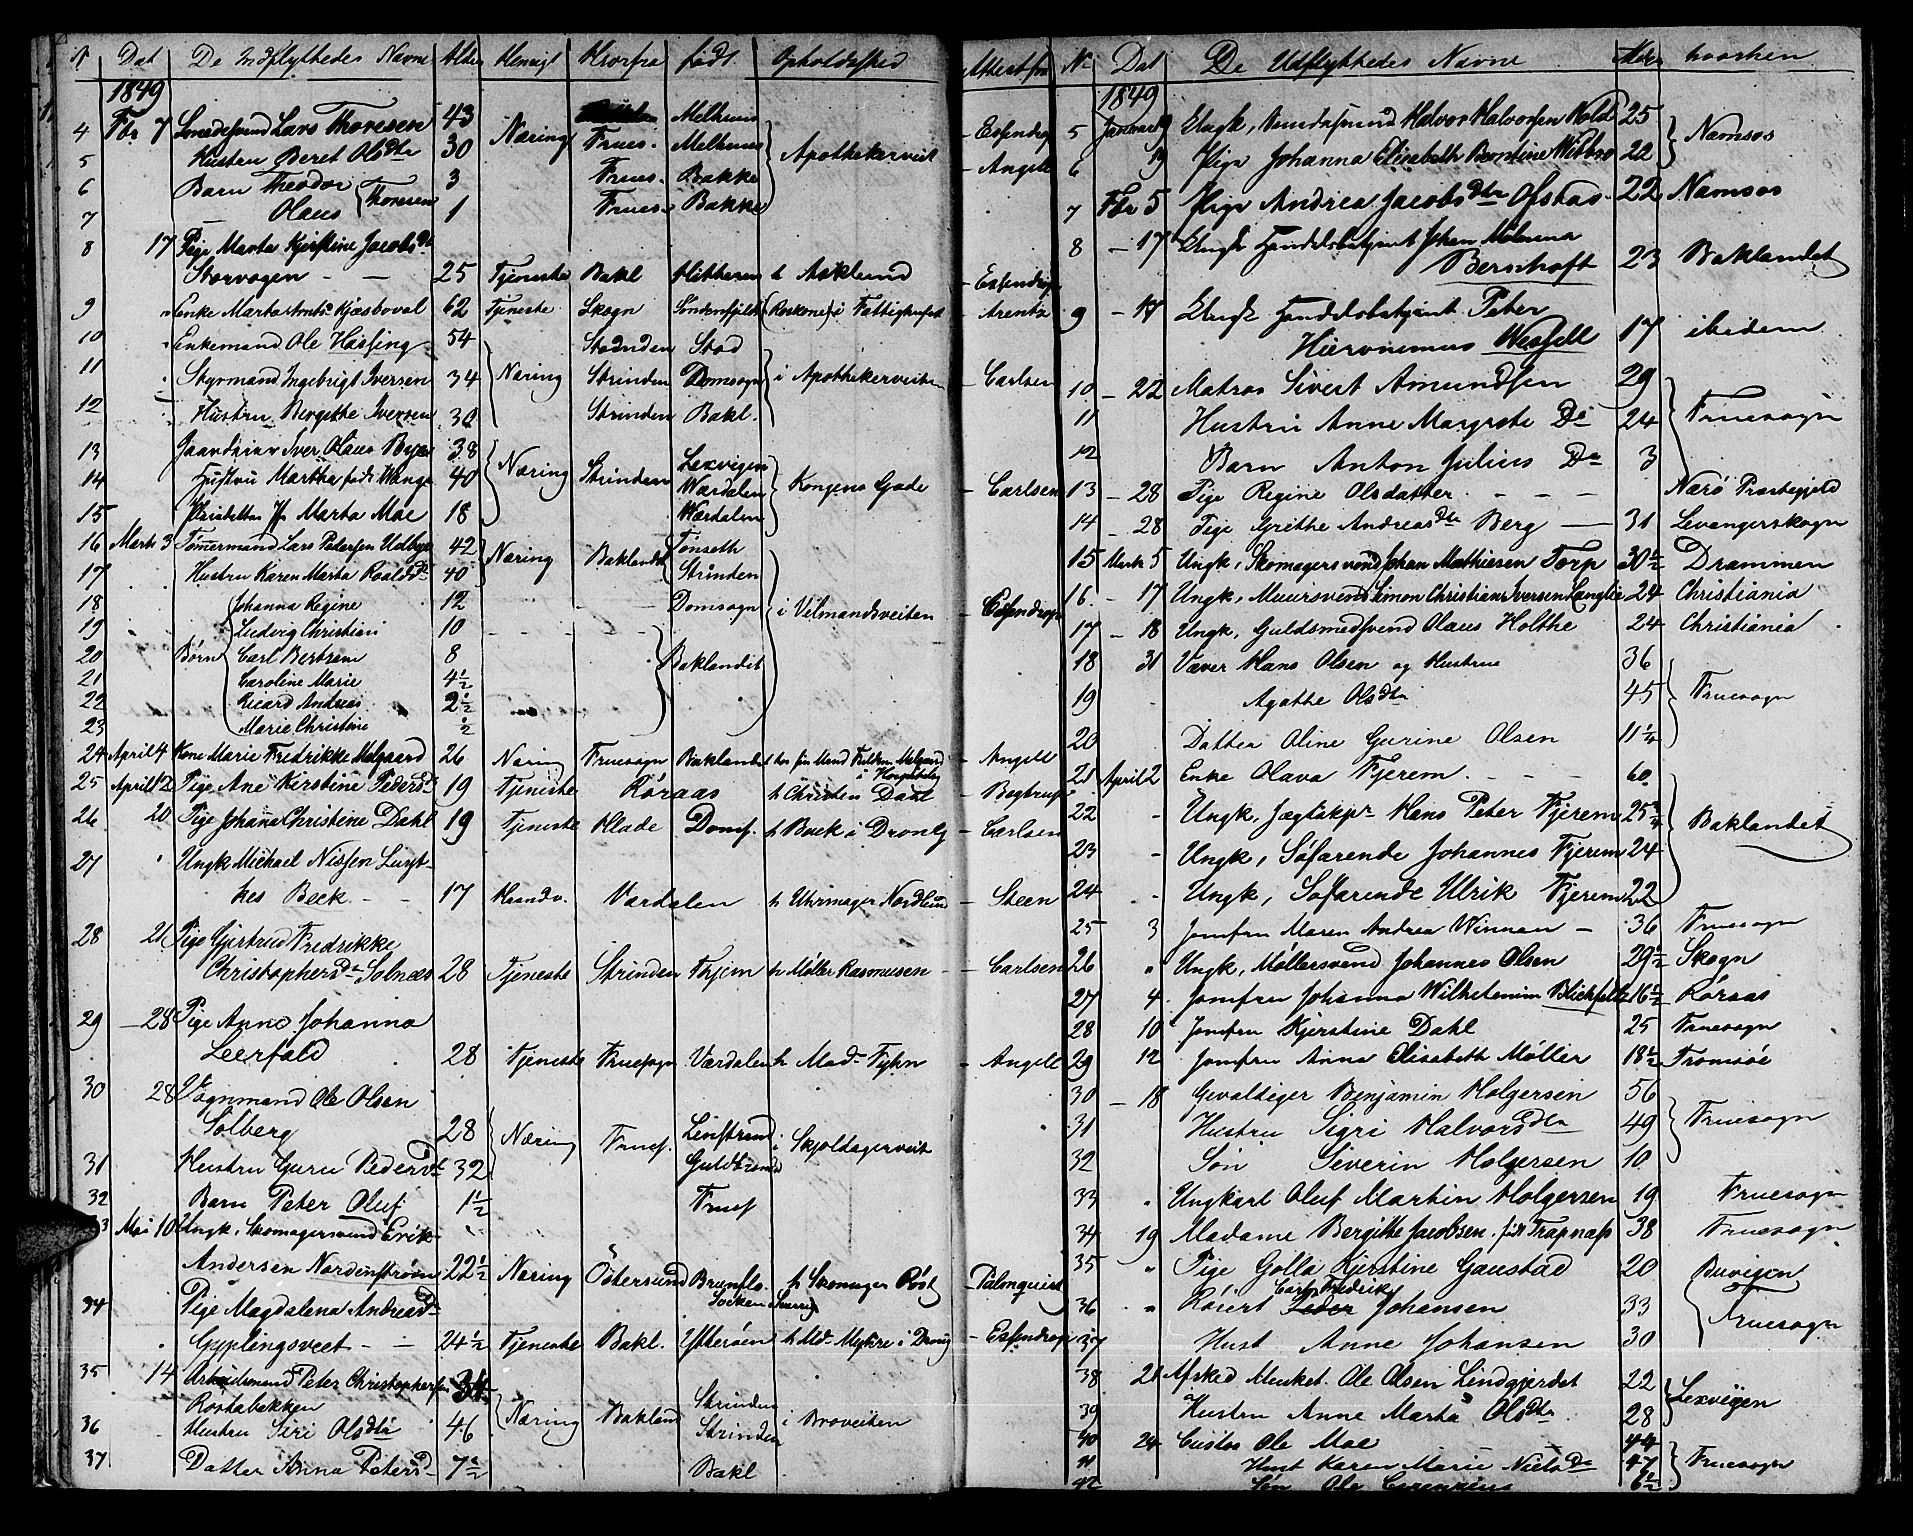 N Dat De Indflyttedes Navne Alder Hensigt Hvorfra født Opholdssted Attest fra
1849
4 Fbr 7 Lars Thoresen 43 Næring Frues. Melhuus Apothekerveit - Essendrop
5 Hustru Beret Olsdtr 30 Melhuus - Angell
6 Barn Theodor Thoresen 3 Frues. Bakke
7 Olaus 1 Frues. Bakke
8 17 Pige Marta Kjirstine Jacobsdt
Storvogen - - 25 Tjeneste Bakl Hitteren h Asklund - Essendrop
9 Enke Marta 62 Tjeneste Skogn i Fattighuset - Arentz
10 Enkemand Ole Hassing 54 Stod
11 Styrmand Ingebrigt Iversen 34 Næring Strinden Domsogn i Apothekerveiten - Carlsen
12 Hustru Bergithe Iversen 30 Strinden Bakl.
13 Iver Olaus Bye 38 Lexvigen
14 Hustru Martha født Wange 40 Næring Strinden Wærdalen Kongens Gade - Carlsen
15 Marta Moe 18 Wærdalen
16 Marts 3 Tømmermand Lars Petersen Udbye 42 Næring Baklandet Tønseth
17 Hustru Karen Marta Roaldsdt 40 Strinden
18 Johanna Regine 12 Domsogn i Vilmandsveiten - Essendrop
19 Ludvig Christian 10
20 Børn Carl Bertrem 8 Baklandet
21 Caroline Marie 4½
22 Ricard Andreas 2½
23 Marie Christine ½
24 April 4 Kone Marie Fredrikke Melgaard 26 Næring Fruesogn Baklandet hos sin Mand - Angell
25 April 12 Pige Ane Kirstine Pedersdt 19 Tjeneste Røraas h Christen Dahl - Bugtrup
26 20 Pige Johana Christine Dahl 19 Tjeneste Hlade Doms. h Buck i Drong - Carlsen
27 Ungk Michael Nissen Luyt-
kes Beck - - 17 Haandv. Værdalen h Uhrmager Nordlund - Steen
28 21 Pige Gjertrud Fredrikke
Christophersdtr Solnæs 28 Tjeneste Strinden h Møller Rasmussen - Carlsen
29 - 28 Pige Anne Johanna
Leerfald 28 Tjeneste Fruesogn Værdalen h Mad. - Angell
30 28 Vognmand Ole Olsen
Solberg 28 Næring Frues. i Skjoldagerveit
31 Hustru Guru Pedersdt 32
32 Barn Peter Oluf 1½ Frues
33 Mai 10 Ungk. Skomagersvend Erik
Andersen Nordenstrøm 22½ Næring Östersund Brunflo h Skomager - Palmquist
Socken Sverrig
34 Pige Magdalena Andreasdtr
24½ Tjeneste Bakl. Ytterøen - Essendrop
35 14 Arbeidsmand Peter Christophersen
Røstabakken Strinden
36 Hustru Siri Olsdtr 46 Næring Bakland Strinden i Broveiten
37 Datter Anna Petersd 7½ Bakl

No Dat De Udflyttedes Navne Alder hvorhen
1849
5 Januar 9 Ungk, Halvor Halvorsen 25 Namsos
6 19 Pige Johanna Elisabeth Berntine Wibbro 22
7 Fbr 5 Pige Andrea Jacobsdtr Ofstad 22 Namsos
8 - 17 Ungk Handelsbetjent Johan
Berschoft 23 Baklandet
9 - 17 Ungk Handelsbetjent Peter
Hieronemus Wessell 17 ibidem
10 - 22 Matros Sivert Amundsen 29
11 Hustru Anne Margrete Do 24 Fruesogn
12 Barn Anton Julius Do 3
13 - 28 Pige Regine Olsdatter - - - Nærø Præstegjeld
14 - 28 Pige Grethe Andreasdtr Berg - 31 Levangerskogn
15 Marts 5 Ungk, Skomagersvend Johan Mathiesen Torp 30½ Drammen
16. - 17 Ungk, Muursvend Simon Christian Iversen Langlie 24 Christiania
17 - 18 Ungk, Guldsmedsvend Olaus Holthe 24 Christiania
18 31 Væver Hans Olsen og Hustrue 36
19 Agathe Olsdtr 45 Fruesogn
20 Datter Oline Gurine Olsen 11¼
21 April 2 Enke Olava Fjerem. - - - 60
22 Ungk, Jægtskpr Hans Peter Fjerem 25¾ Baklandet
23 Ungk, Søfarende Johannes Fjerem 24
24 Ungk, Søfarende Ulrik Fjerem 22
25 3 Jomfru Maren Andrea Winnan - 36 Fruesogn
26 " Ungk, Møllersvend Johannes Olsen 29½ Skogn
27 4 Jomfru Johanna Wilhelmine Blichfeldt 16½ Røraas
28 10 Jomfru Kjerstine Dahl 25 Fruesogn
29 12 Jomfru Anna Elisabeth Møller 18½ Tromsøe
30 - 18 Gevaldiger Benjamin Holgersen 56
31 Hustru Sigri Halvorsdtr 49 Fruesogn
32 Søn Severin Holgersen 10
33 " Ungkarl Oluf Martin Holgersen 19 Fruesogn
34 19 Madame Bergitte Jacobsen født Trapnæss 38 Fruesogn
35 " Pige Golla Kjerstine Gaustad 20 Buvigen
Carl Fredrik
36 " Johansen 33 Fruesogn
37 Hust Anne Johansen 30
38 21 Afsked Musket. Ole Olsen Lindgjerdet 22 Lexvigen
39 Hustru Anne Marta Olsdtr 28
40 24 Custos Ole Moe 44
41 Hust Karen Marie Nielsdtr 47 Fruesogn
42 Søn Ole 6½